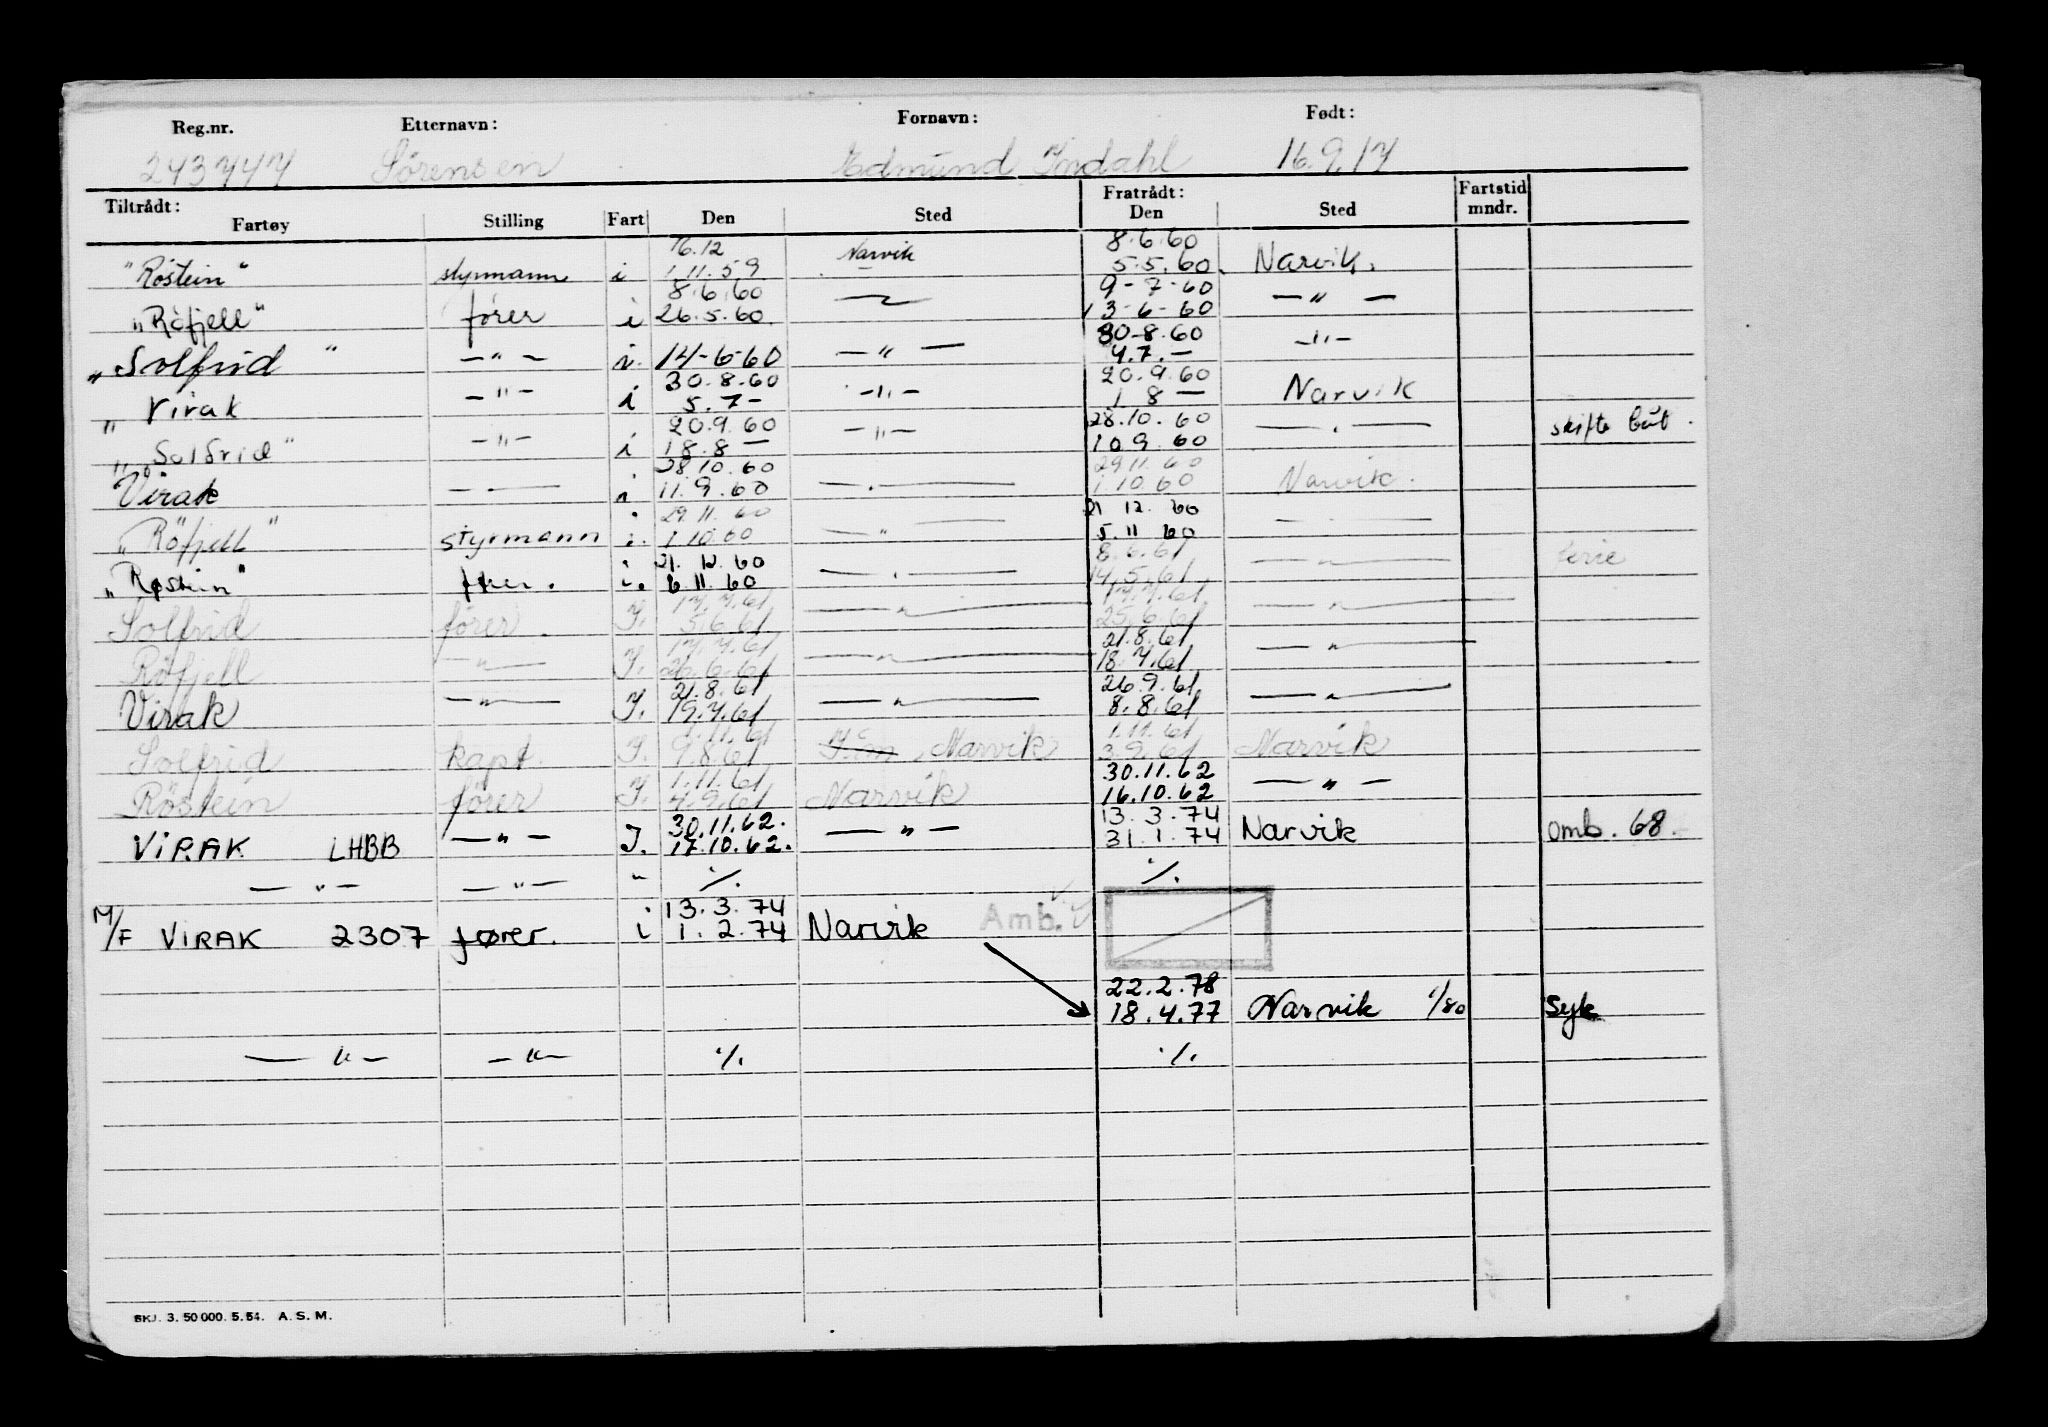 Reg.nr. Etternavn: Fornavn: Født:
243747 Sörensen Edmund Indahl 16.9.17
Tiltrådt: Fratrådt: Fartstid
Fartøy Stilling Fart Den Sted Den Sted mndr.
16.12 8.6.60
"Röstein" styrmann i 1.11.59 Narvik 5.5.60. Narvik.
8.6.60 9-7-60
"Röfjell" fører i 26.5.60. 13-6-60 — " —
30-8.60
"Solfrid" — " — i. 14-6-60 — " — 4.7.—
30.8.60 20.9.60
"Virak — " — i 5.7- — " — 1 8 — Narvik
20.9.60 28.10.60
"Solfrid" — " — i 18.8 — — " — 10.9.60 — " — skifte båt.
28.10.60 29.11.60
Virak — " — i 11.9.60 — " — 1.10.60 Narvik.
29.11.60 21 12. 60
"Röfjell" styrmann i. 1.10.60 — " — 5.11 60 — " —
21. 12.60 8.6.61
"Røstein" fører. i. 6.11.60 — " — 14.5.61 — " — ferie
17.7.61 17.7.61
Solfrid fører. I. 5.6.61 — " — 25.6.61 — " —
17.7.61 21.8.61
Röfjell — " — I. 26.6.61 — " — 18.7.61 — " —
21.8.61 26.9.61
Virak — " — I. 19.7.61 — " — 8.8.61 — " —
1.11.61 1.11.61
Solfrid kapt. I. 9.8.61 Narvik 3.9.61 Narvik
1.11.61 30.11.62
Röstein fører I. 4.9.61 Narvik 16.10.62 — " —
30.11.62. 13.3.74
VIRAK LHBB — " — I. 17.10.62. — " — 31.1.74 Narvik omb. 68.
— " — — " — " ./. ./.
13.3.74 Amb.
M/F VIRAK 2307 fører. i 1.2.74 Narvik
22.2.78
18.4.77 Narvik 1/80 Syk
— " — — " — ./. ./.
SKJ. 3. 50 000. 5. 54. A. S. M.